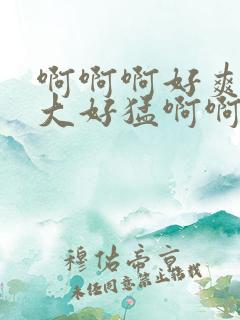 啊啊啊好爽
大好猛啊啊
穆佑帝京
未经同意禁止转载